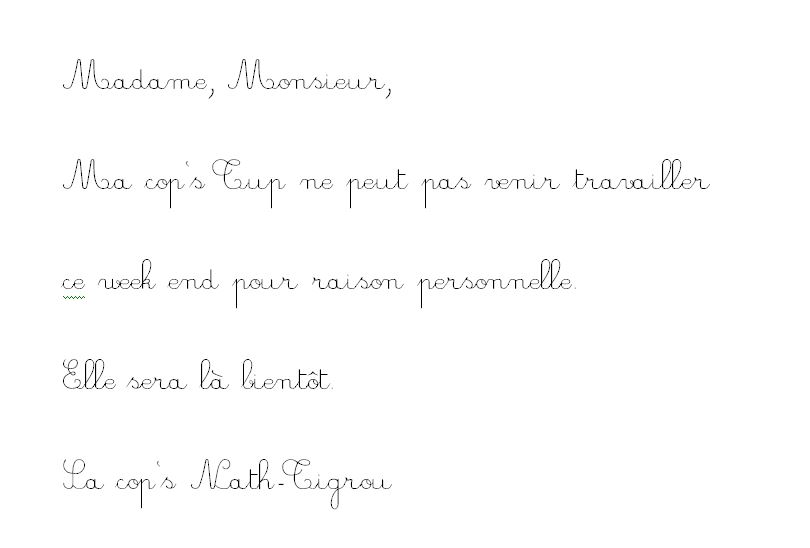 Madame, Monsieur,
Ma cop's Tup ne peut pas venir travailler
ce week end pour raison personnelle.
Elle sera là bientôt.
Sa cop's Nath-Tigrou